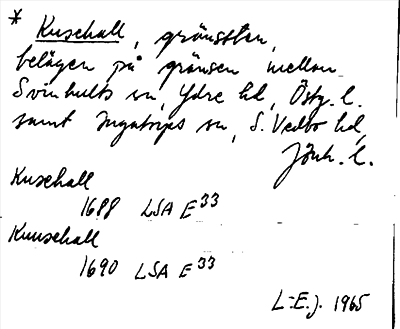 * Kuschall, gränssten,
belägen på gränsen mellan
Svinhults sn, Ydre hd, Östg. l.
samt Ingatorps sn, S. Vedbo hd,
Jönk. l.
Kuschall
1688 LSA E 33
Kuuschall
1690 LSA E 33
L-E.J. 1965